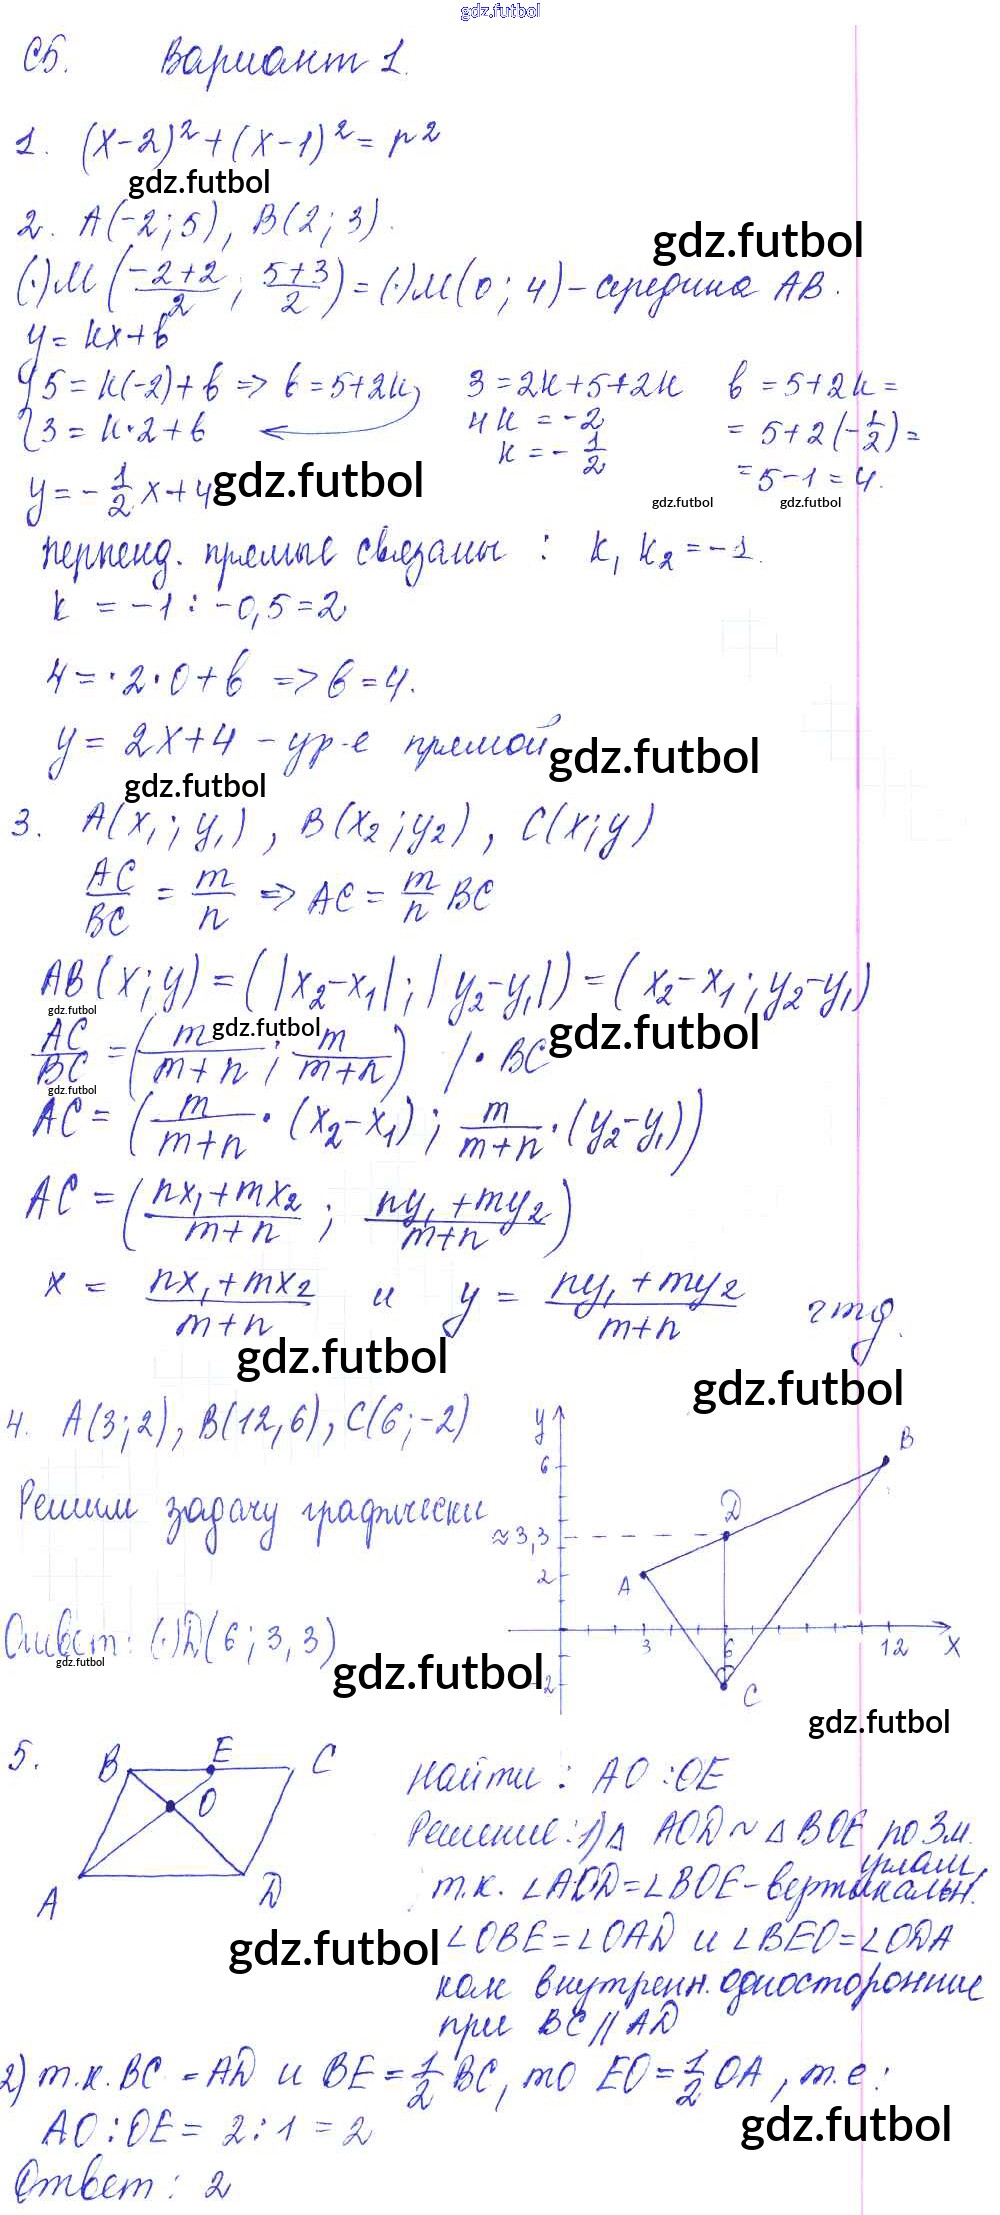 gdz.futbol
С5. Вариант 1.
1. (x-2)² + (x-1)² = r²
gdz.futbol
2. A(-2; 5), B(2; 3).
gdz.futbol
(·)M (-2+2/2 ; 5+3/2) = (·)M(0; 4) - середина AB.
y = kx+b
{5 = k(-2)+b => b = 5+2k 3 = 2k+5+2k b = 5+2k =
{3 = k·2+b 4k = -2 = 5+2(-1/2) =
k = -1/2 = 5-1 = 4.
y = -1/2 x+4 gdz.futbol
gdz.futbol gdz.futbol
перпенд. прямые связаны : k₁ k₂ = -1.
k = -1 : -0,5 = 2
4 = ·2·0+b => b = 4.
y = 2x+4 - ур-е прямой
gdz.futbol
gdz.futbol
3. A(x₁; y₁), B(x₂; y₂), C(x; y)
AC/BC = m/n => AC = m/n BC
AB(x; y) = (|x₂-x₁|; |y₂-y₁|) = (x₂-x₁; y₂-y₁)
gdz.futbol gdz.futbol gdz.futbol
AC/BC = (m/m+n ; m/m+n) /· BC
gdz.futbol
AC = (m/m+n · (x₂-x₁); m/m+n · (y₂-y₁))
AC = (nx₁+mx₂/m+n ; ny₁+my₂/m+n)
x = nx₁+mx₂/m+n и y = ny₁+my₂/m+n чтд.
gdz.futbol
gdz.futbol
4. A(3; 2), B(12, 6), C(6; -2)
Решим задачу графически
y
B
6
D
≈3,3
2
A
3
6
12
x
-2
C
Ответ: (·)D(6; 3,3)
gdz.futbol
gdz.futbol
gdz.futbol
5. B E C
O
A D
найти: AO:OE
Решение: 1) △ AOD ~ △ BOE по 3м.
углам,
т.к. ∠AOD = ∠BOE - вертикальн.
gdz.futbol
∠OBE = ∠OAD и ∠BEO = ∠ODA
как внутренн. односторонние
при BC || AD
2) т.к. BC = AD и BE = 1/2 BC, то EO = 1/2 OA, т.е:
gdz.futbol
AO:OE = 2:1 = 2
Ответ: 2